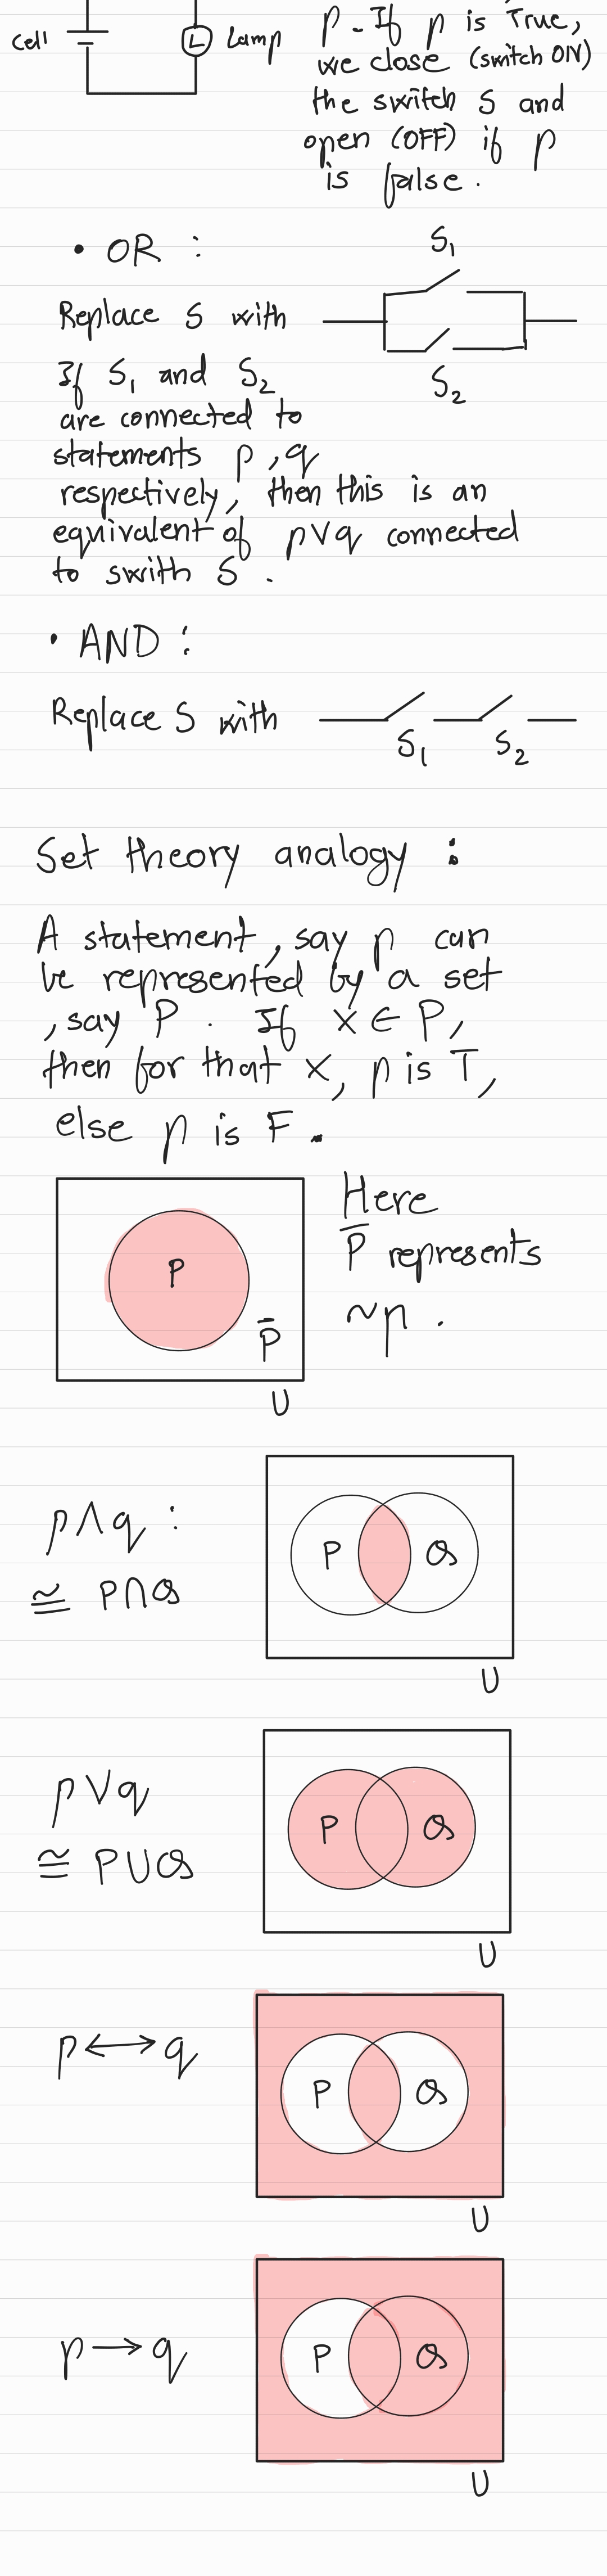 Cell
L
Lamp
p. If p is True,
we close (switch ON)
the switch S and
open (OFF) if p
is false.
• OR :
S₁
Replace S with
S₂
If S₁ and S₂
are connected to
statements p, q
respectively, then this is an
equivalent of p∨q connected
to swrith S.
• AND :
Replace S with
S₁ S₂
Set theory analogy :
A statement, say p can
be represented by a set
, say P. If x ∈ P,
then for that x, p is T,
else p is F.
P
P̅
U
Here
P̅ represents
~p.
p∧q :
≅ P∩Q
P Q
U
p∨q
≅ P∪Q
P Q
U
p ↔ q
P Q
U
p → q
P Q
U